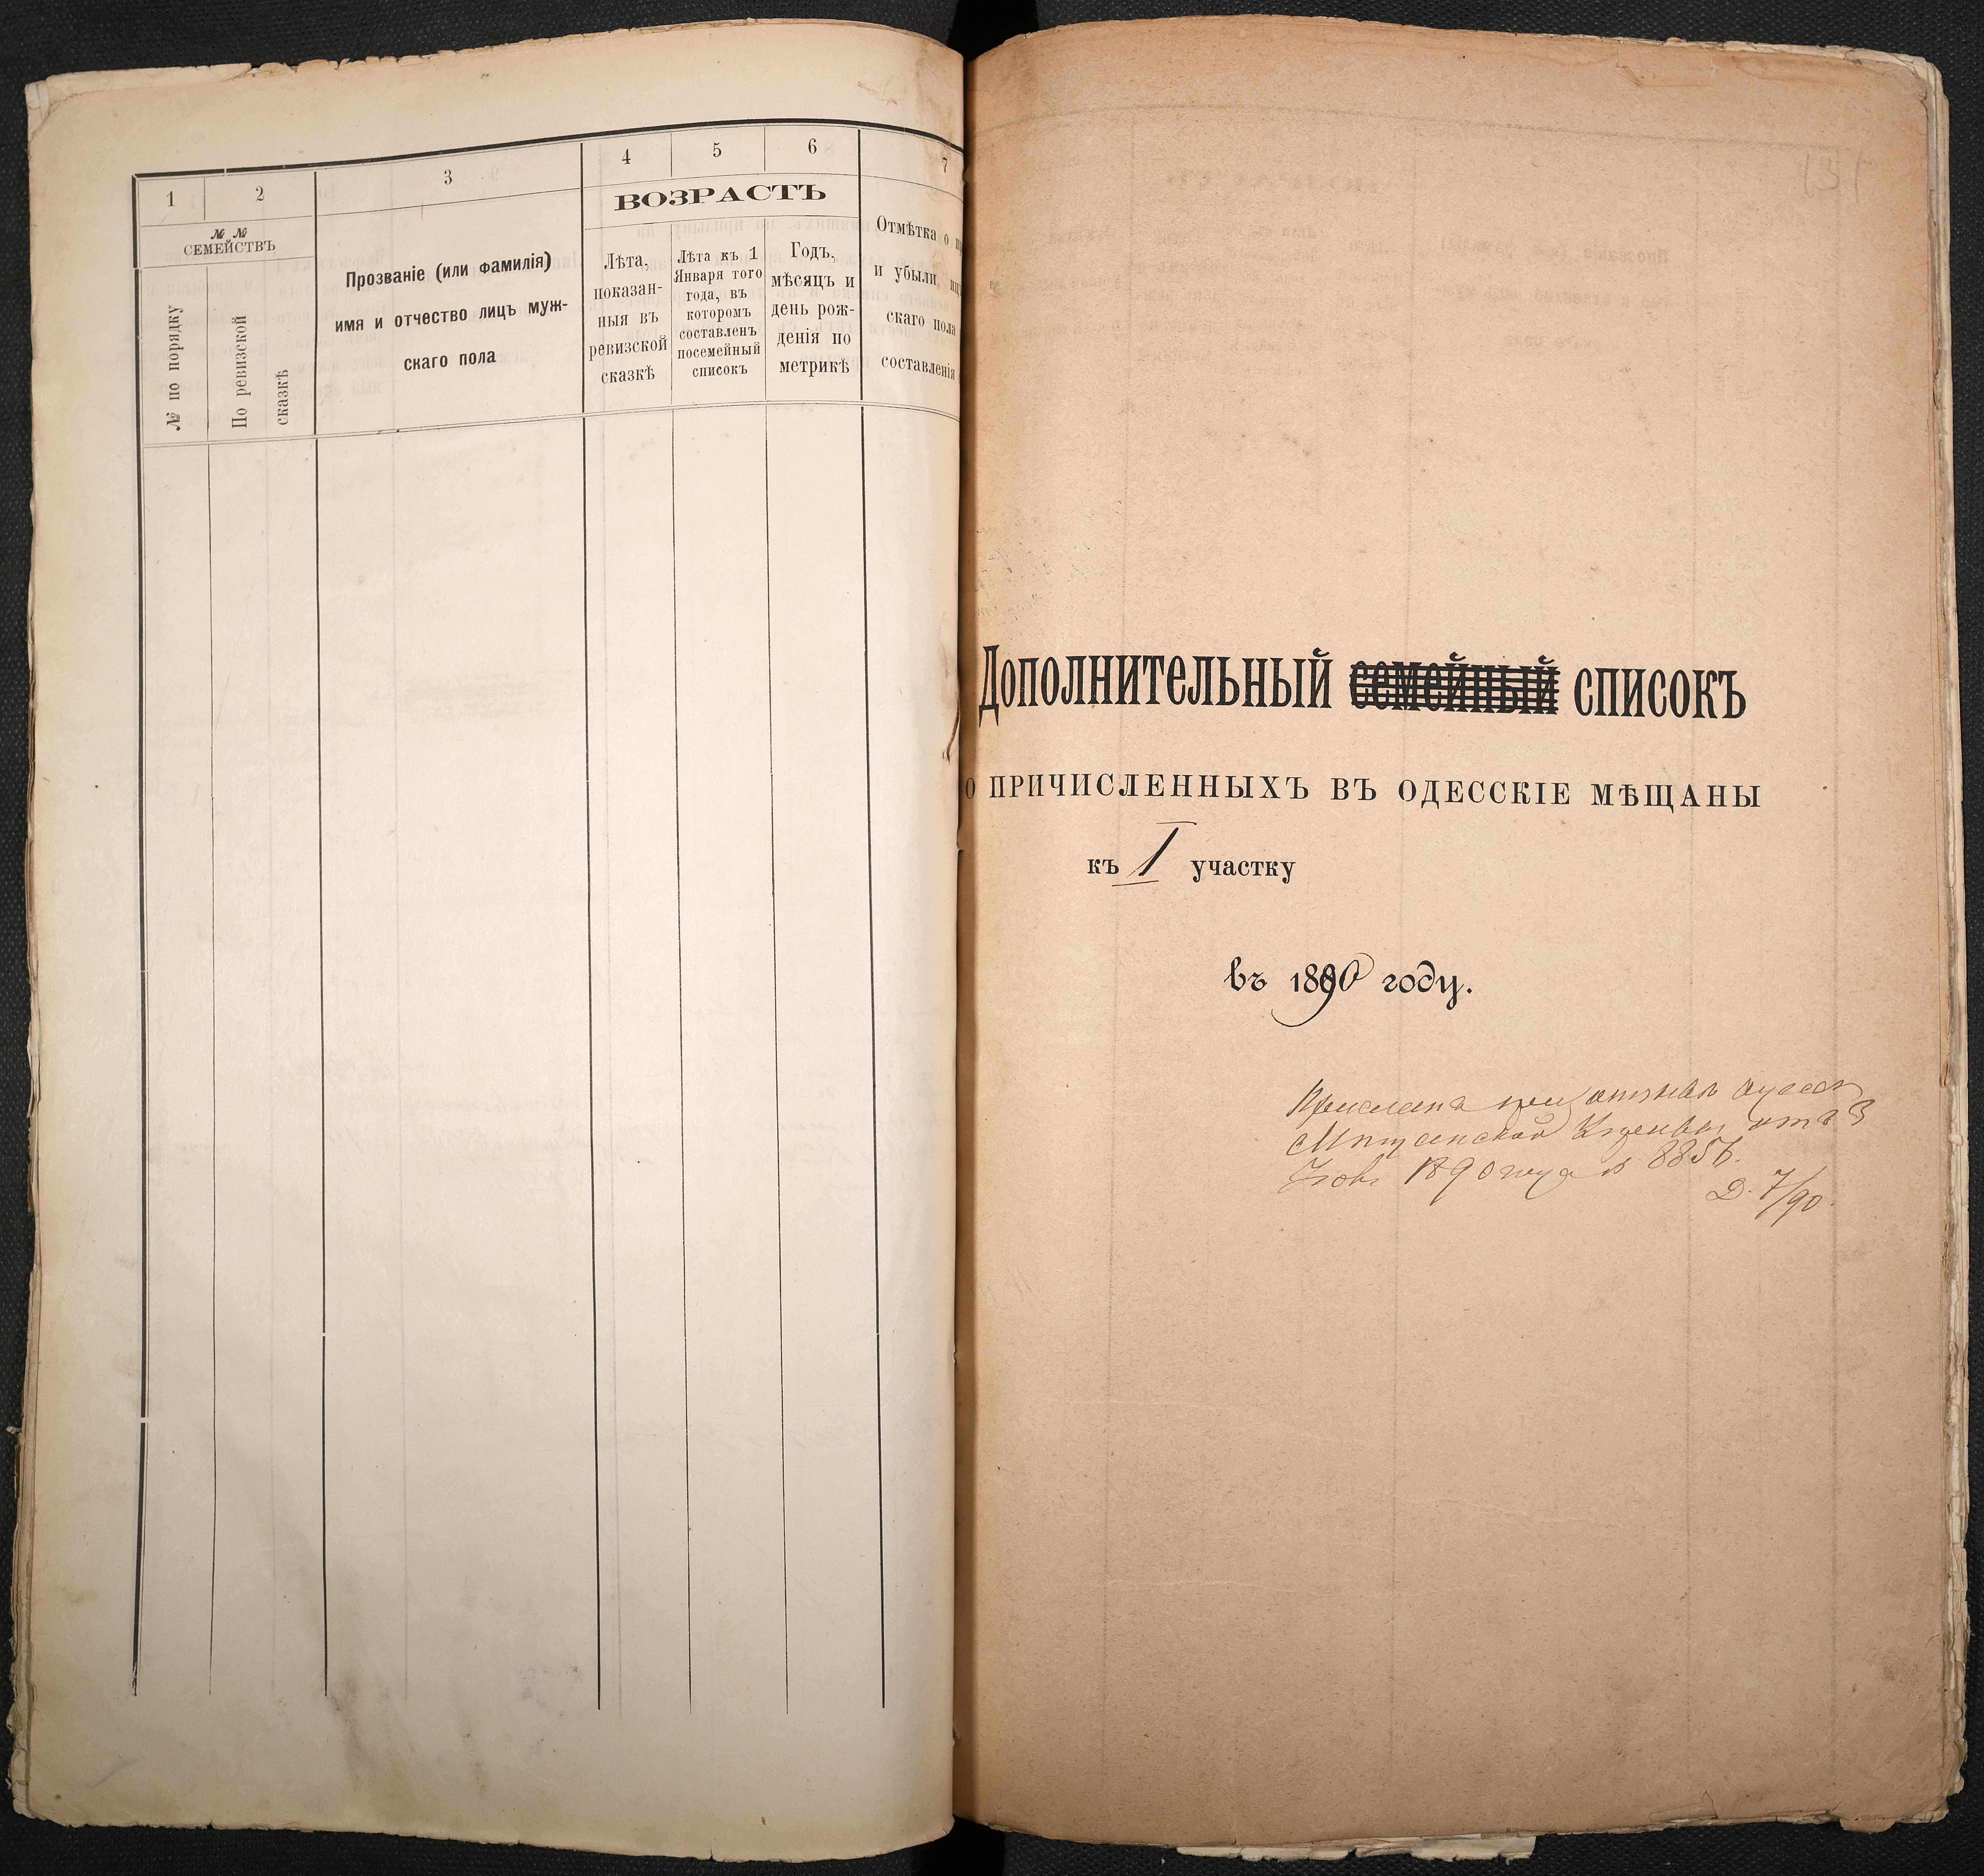 1
2
3
4
5
6
7
№ №
СЕМЕЙСТВЪ
№ по порядку
По ревизской
сказкѣ
Прозваніе (или фамилія)
имя и отчество лицъ муж-
скаго пола
ВОЗРАСТЪ
Лѣта,
показан-
ныя въ
ревизской
сказкѣ
Лѣта къ 1
Января того
года, въ
которомъ
составленъ
посемейный
списокъ
Годъ,
мѣсяцъ и
день рож-
денія по
метрикѣ
Отмѣтка о
и убыли,
скаго пола
составленія
Дополнительный семейный списокъ
О ПРИЧИСЛЕННЫХЪ ВЪ ОДЕССКІЕ МѢЩАНЫ
къ I участку
въ 1890 году.
Прислана при
Мѣщанской Управы отъ 3
1890 года № 8856.
Д. 7/90.